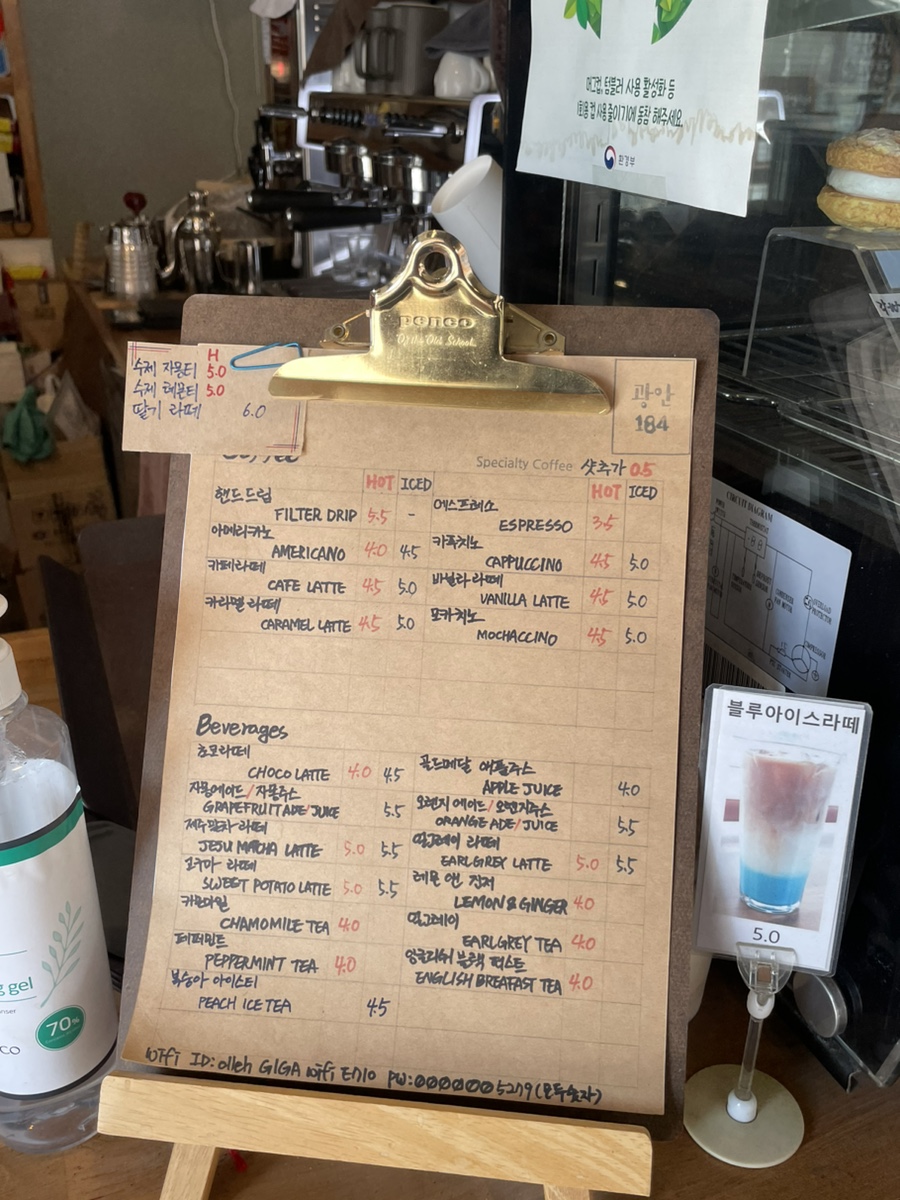 머그컵, 텀블러 사용 활성화 등
1회용 컵 사용 줄이기에 동참 해주세요.
환경부
penco
Of the Old School
H
수제 자몽티 5.0
수제 레몬티 5.0
딸기 라떼 6.0
광안
184
Coffee
Specialty Coffee 샷추가 0.5
HOT ICED
핸드드립
FILTER DRIP 5.5 -
아메리카노
AMERICANO 4.0 4.5
카페라떼
CAFE LATTE 4.5 5.0
카라멜 라떼
CARAMEL LATTE 4.5 5.0
HOT ICED
에스프레소
ESPRESSO 3.5
카푸치노
CAPPUCCINO 4.5 5.0
바닐라 라떼
VANILLA LATTE 4.5 5.0
모카치노
MOCHACCINO 4.5 5.0
Beverages
초코라떼
CHOCO LATTE 4.0 4.5
자몽에이드/자몽주스
GRAPEFRUIT ADE/JUICE 5.5
제주말차 라떼
JESU MATCHA LATTE 5.0 5.5
고구마 라떼
SWEET POTATO LATTE 5.0 5.5
카모마일
CHAMOMILE TEA 4.0
페퍼민트
PEPPERMINT TEA 4.0
복숭아 아이스티
PEACH ICE TEA 4.5
골드메달 애플주스
APPLE JUICE 4.0
오렌지 에이드/오렌지주스
ORANGE ADE/JUICE 5.5
얼그레이 라떼
EARLGREY LATTE 5.0 5.5
레몬 앤 진저
LEMON & GINGER 4.0
얼그레이
EARLGREY TEA 4.0
잉글리쉬 블랙 퍼스트
ENGLISH BREAFAST TEA 4.0
WiFi ID: olleh GIGA WiFi E710 PW: 0000005279 (모두숫자)
CIRCUIT DIAGRAM
블루아이스라떼
5.0
g gel
70%
CO